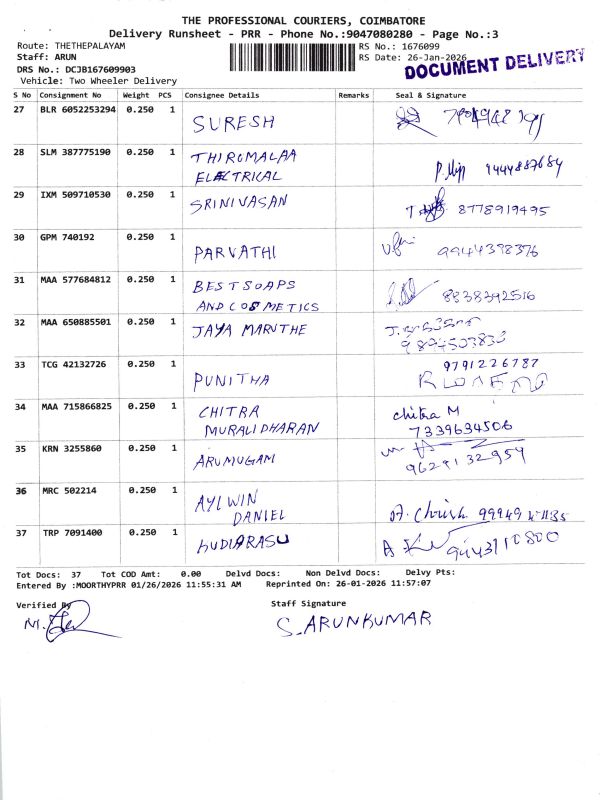 THE PROFESSIONAL COURIERS, COIMBATORE
Delivery Runsheet - PRR - Phone No.:9047080280 - Page No.:3
Route: THETHEPALAYAM
Staff: ARUN
DRS No.: DCJB167609903
Vehicle: Two Wheeler Delivery
RS No.: 1676099
RS Date: 26-Jan-2026
DOCUMENT DELIVERY
S No Consignment No Weight PCS Consignee Details Remarks Seal & Signature
27 BLR 6052253294 0.250 1 SURESH
28 SLM 387775190 0.250 1 THIROMALAA
ELECTRICAL 9444887684
29 IXM 509710530 0.250 1 SRINIVASAN 8778919495
30 GPM 740192 0.250 1 PARVATHI 9944398376
31 MAA 577684812 0.250 1 BEST SOAPS
AND COSMETICS 8838392516
32 MAA 650885501 0.250 1 JAYA MARUTHE
33 TCG 42132726 0.250 1 PUNITHA 9791226787
34 MAA 715866825 0.250 1 CHITRA
MURALIDHARAN chitra M
7339634506
35 KRN 3255860 0.250 1 ARUMUGAM 9629132959
36 MRC 502214 0.250 1 AYLWIN
DANIEL
37 TRP 7091400 0.250 1 KUDIARASU 9443110800
Tot Docs: 37 Tot COD Amt: 0.00 Delvd Docs: Non Delvd Docs: Delvy Pts:
Entered By :MOORTHYPRR 01/26/2026 11:55:31 AM Reprinted On: 26-01-2026 11:57:07
Verified By
Staff Signature
S. ARUNKUMAR